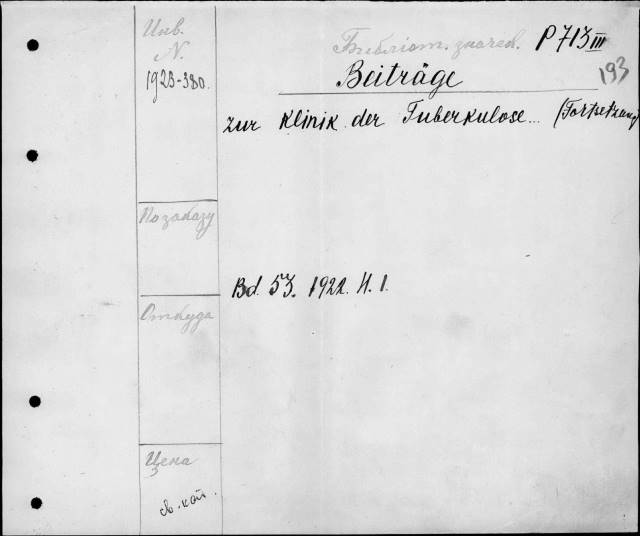 Инв.
N.
1923-380.
Библіот. значек. P 713 III
193
Beiträge
zur Klinik der Tuberkulose... (Fortsetzung)
По заказу
Bd. 53. 1922. H. 1.
Откуда
Цена
св. кат.